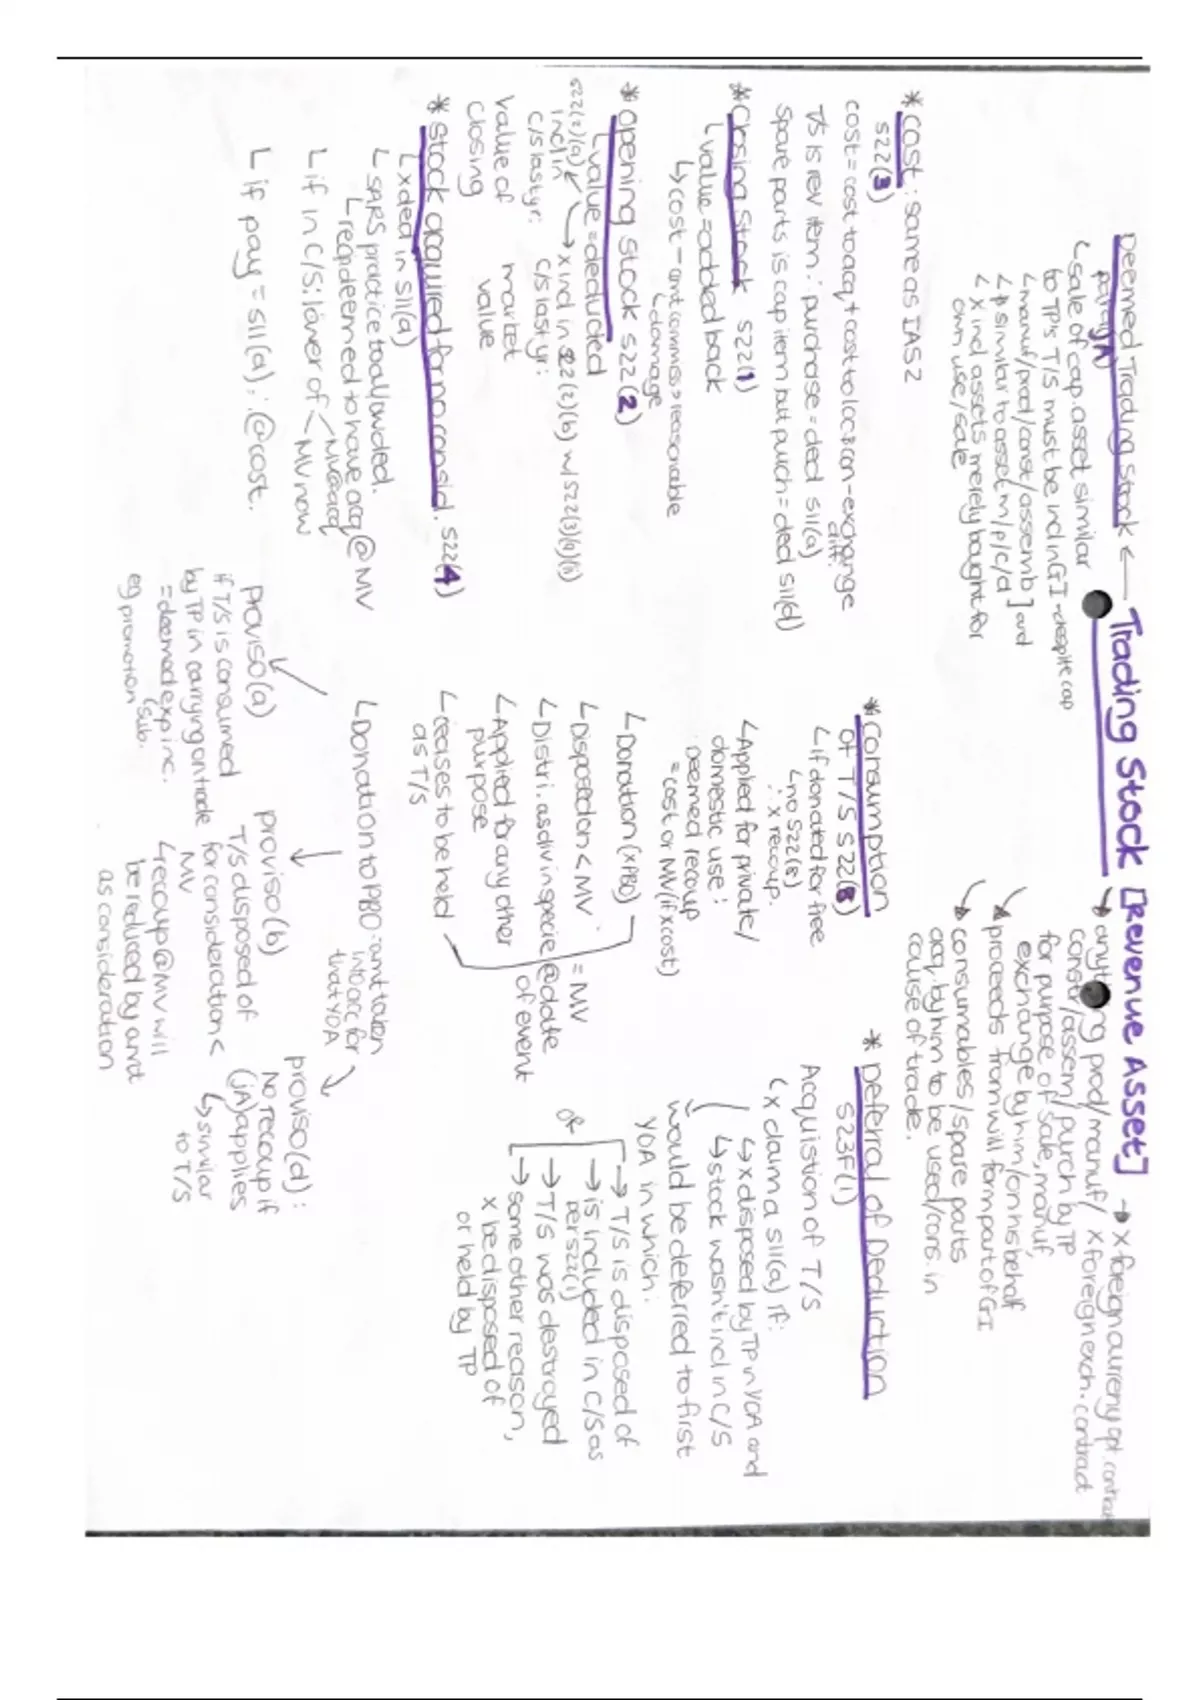 Trading Stock [Revenue Asset]
→ anything prod/manuf/
constr/assem/purch by TP
for purpose of sale, manuf,
exchange by him/on his behalf
→ proceeds from will form part of GI
→ consumables/spare parts
acq. by him to be used/cons. in
course of trade.
→ x foreign currency opt. contract
x foreign exch. contract
Deemed Trading Stock ←
para (jA)
↳ sale of cap. asset similar
to TP's T/S must be incl in GI - despite cap
↳ manuf/prod/const/assemb ] and
↳ similar to asset m/p/c/a
↳ x incl assets merely bought for
own use/sale
* cost: same as IAS 2
S22(3)
cost = cost to acq + cost to loc & con - exchange
diff.
T/S is rev item ∴ purchase = ded S11(a)
Spare parts is cap item but purch = ded S11(a)
* Closing Stock S22(1)
↳ value = added back
↳ cost - amt commiss > reasonable
↳ damage
* opening Stock S22(2)
↳ value = deducted
S22(2)(a) ↙ ↘ x incl in S22(2)(b) w/ S22(3)(a)(ii)
incl in
C/S last yr: C/S last yr:
value of market
closing value
* Stock acquired for no consid. S22(4)
↳ x ded in S11(a)
↳ SARS practice to allow ded.
↳ recip deemed to have acq @ MV
↳ if in C/S: lower of < MV@acq
MV now
↳ if pay = S11(a) ∴ @ cost.
* Consumption
of T/S S22(8)
↳ if donated for free
↳ no S22(8)
∴ x recoup.
↳ Applied for private/
domestic use:
Deemed recoup
= cost or MV (if x cost)
↳ Donation (x PBO)
↳ Disposed on < MV
↳ Distri. as div in specie
↳ Applied for any other
purpose
↳ ceases to be held
as T/S
= MV
@ date
of event
↳ Donation to PBO: amt taken
into acc for
that YOA
proviso (a)
if T/S is consumed
by TP in carrying on trade
= deemed exp inc.
(sub.
eg promotion
proviso (b)
T/S disposed of
for consideration <
MV
↳ recoup @ MV will
be reduced by amt
as consideration
proviso (d):
No recoup if
(jA) applies
↳ similar
to T/S
* Deferral of Deduction
S23F(1)
Acquistion of T/S
↳ x claim a S11(a) if:
↳ x disposed by TP in YOA and
↳ stock wasn't incl in C/S
Would be deferred to first
YOA in which:
→ T/S is disposed of
→ is included in C/S as
per S22(1)
or
→ T/S was destroyed
→ some other reason,
x be disposed of
or held by TP